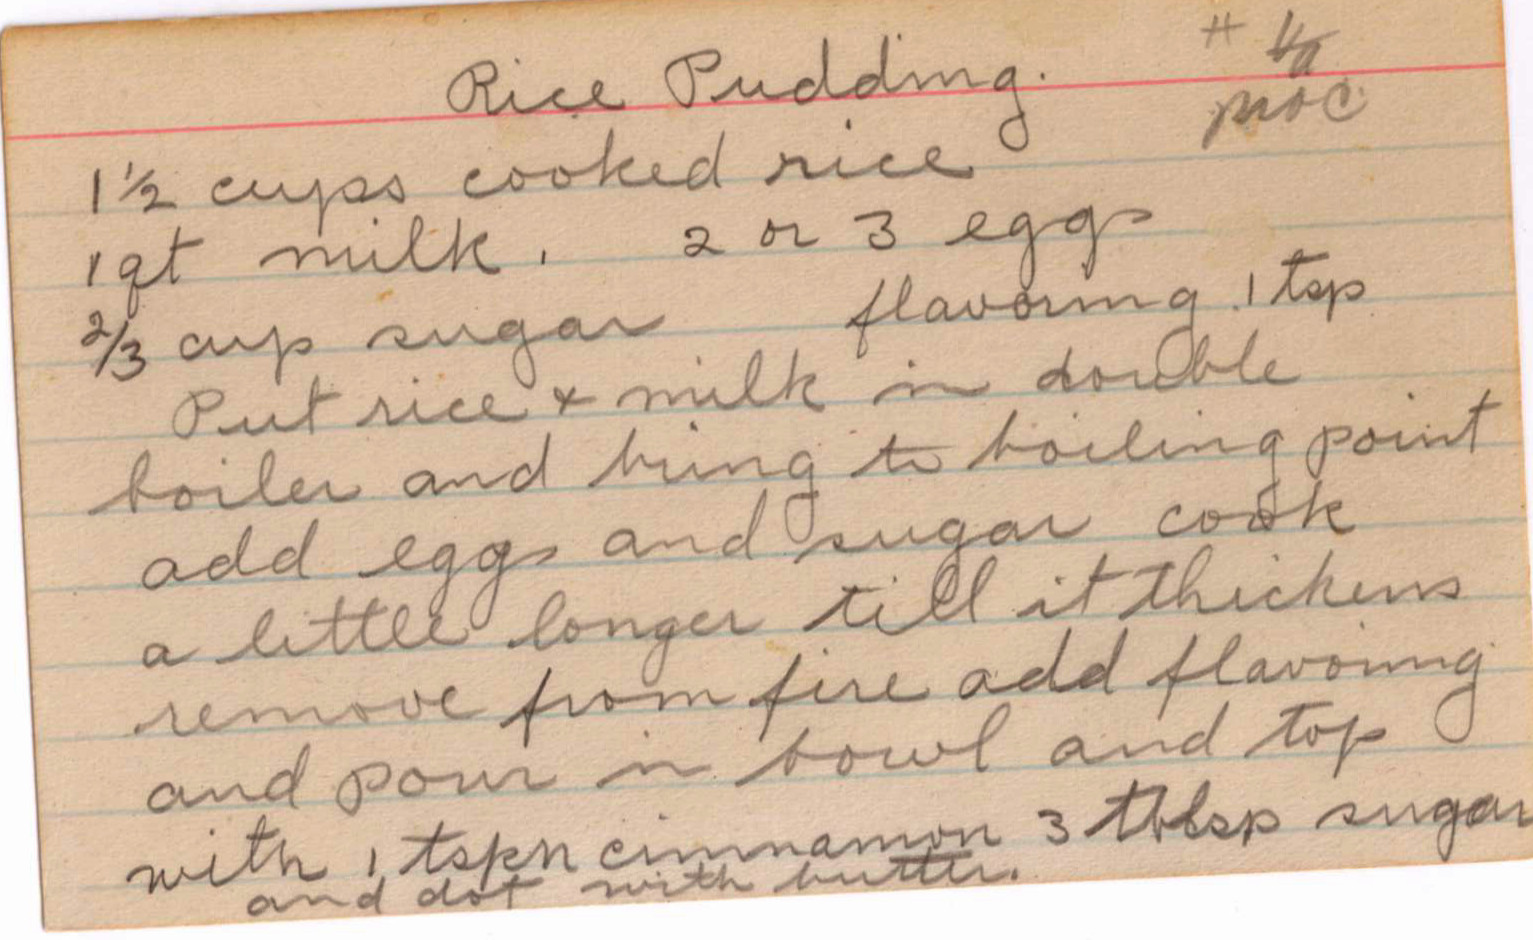 Rice Pudding.
1 1/2 cups cooked rice
1 qt milk. 2 or 3 eggs
2/3 cup sugar flavoring 1 tsp
Put rice & milk in double
boiler and bring to boiling point
add eggs and sugar cook
a little longer till it thickens
remove from fire add flavoring
and pour in bowl and top
with 1 tspn cinnamon 3 tblsp sugar
and dot with butter.